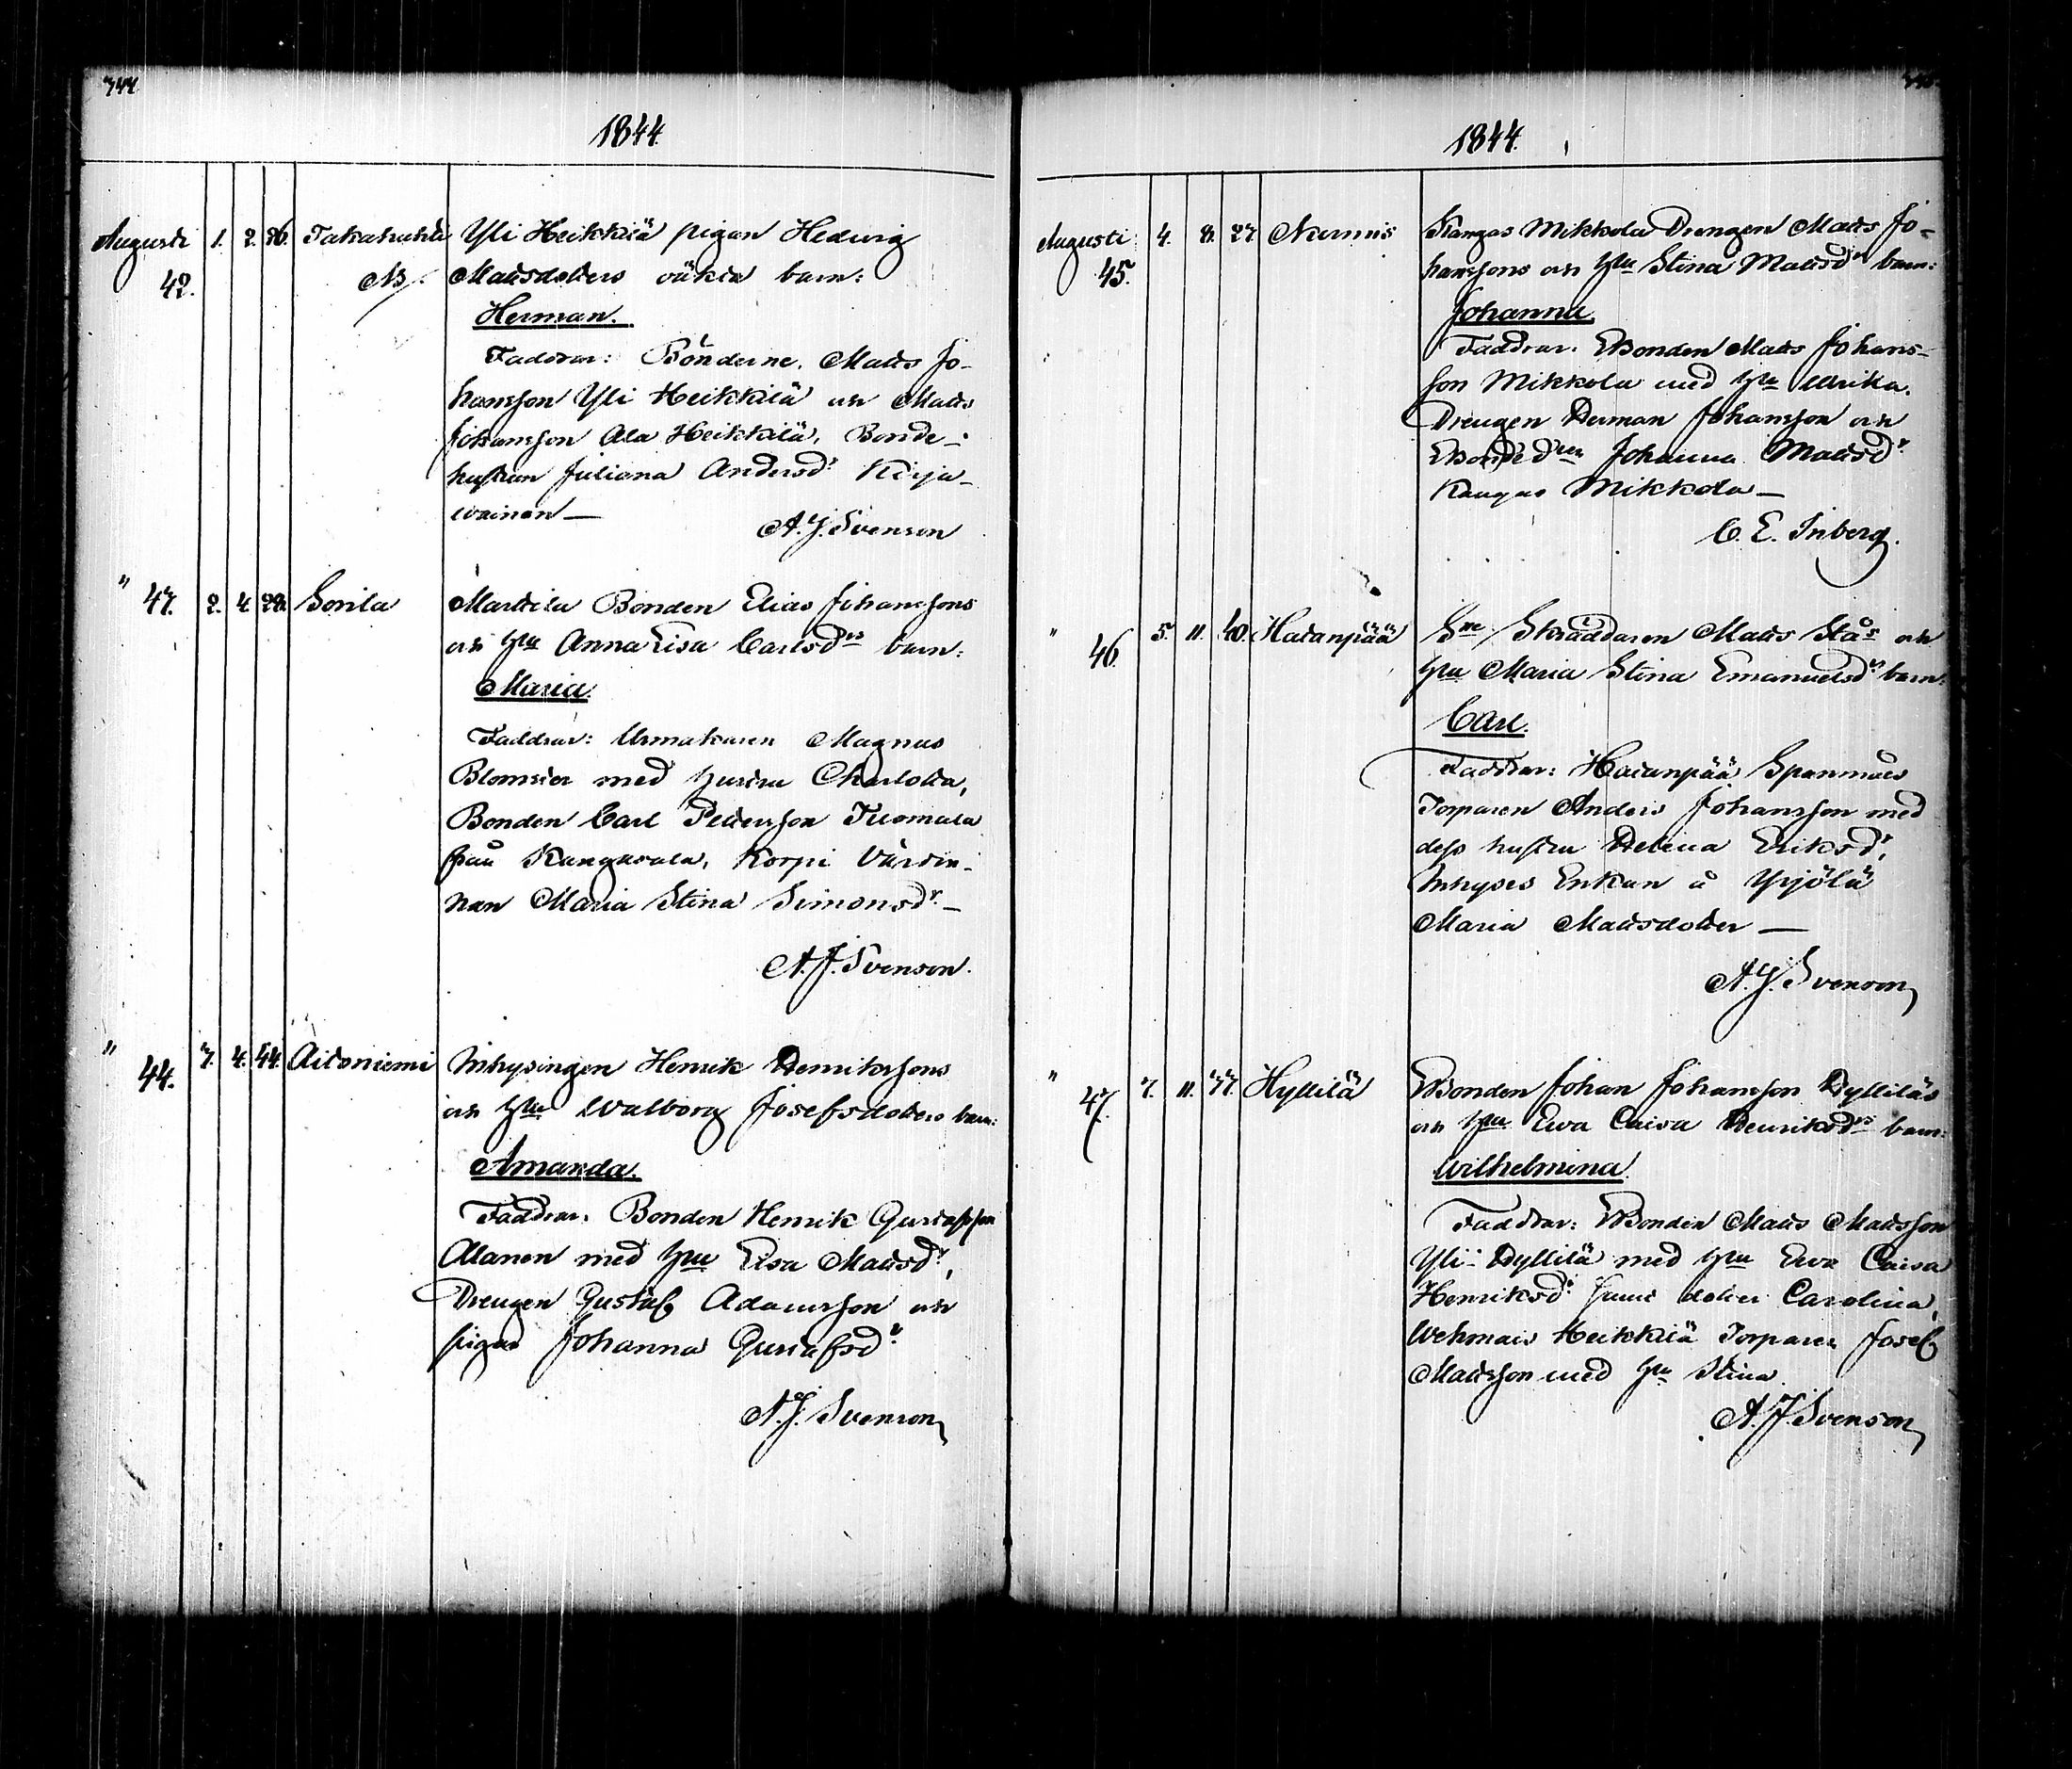 344
1844
Augusti 1. 2. 26. Takahuhti Yli Heikkilä pigan Hedwig
42. NB. Mattsdotters oäkta barn:
Herman.
Faddrar: Bönderne, Matts Jo-
hansson Yli Heikkilä och Matts
Johansson Ala Heikkilä, Bonde-
hustrun Juliana Andersdr Kirja-
wainen —
A. J. Svenson
" 43. 2. 4. 28. Sorila Marttila Bonden Elias Johanssons
och hu Anna Lisa Carlsdrs barn:
Maria.
Faddrar: Urmakaren Magnus
med hustru Charlotta,
Bonden Carl Pettersson Tuomala
från Kangasala, Korpi Värdin-
nan Maria Stina Simonsdr —
A. J. Svenson.
" 44. 3. 4. 44. Aitoniemi Inhysingen Henrik Henrikssons
och hu Walborg Josefsdotters barn:
Amanda.
Faddrar: Bonden Henrik Gustafsson
Alanen med hu Lisa Mattsdr,
Drengen Gustaf Adamsson och
pigan Johanna Gustafsdr
A. J. Svenson
1844.
Augusti 4. 8. 27. Nurmis Kangas Mikkola Drengen Matts Jo-
45. hanssons och hu Stina Mattsdrs barn:
Johanna.
Faddrar: Bonden Matts Johans-
son Mikkola med hu Ulrika.
Drengen Herman Johansson och
Bondedren Johanna Mattsdr
Kangas Mikkola —
C. E. Inberg.
" 46. 5. 11. 40. Hatanpää Sne Skräddaren Matts Stås och
hu Maria Stina Emanuelsdrs barn:
Carl.
Faddrar: Hatanpää Spanmåls
Torparen Anders Johansson med
dess hustru Helena Eriksdr,
Inhyses Enkan å Yrjölä
Maria Mattsdotter —
A. J. Svenson
" 47. 7. 11. 37. Hyllilä Bonden Johan Johansson Hylliläs
och hu Ewa Caisa Henriksdrs barn:
Wilhelmina.
Faddrar: Bonden Matts Mattsson
Yli-Hyllilä med hu Ewa Caisa
Henriksdr samt dotter Carolina,
Wehmais Heikkilä Torparen Josef
Mattsson med hu Stina.
A. J. Svenson